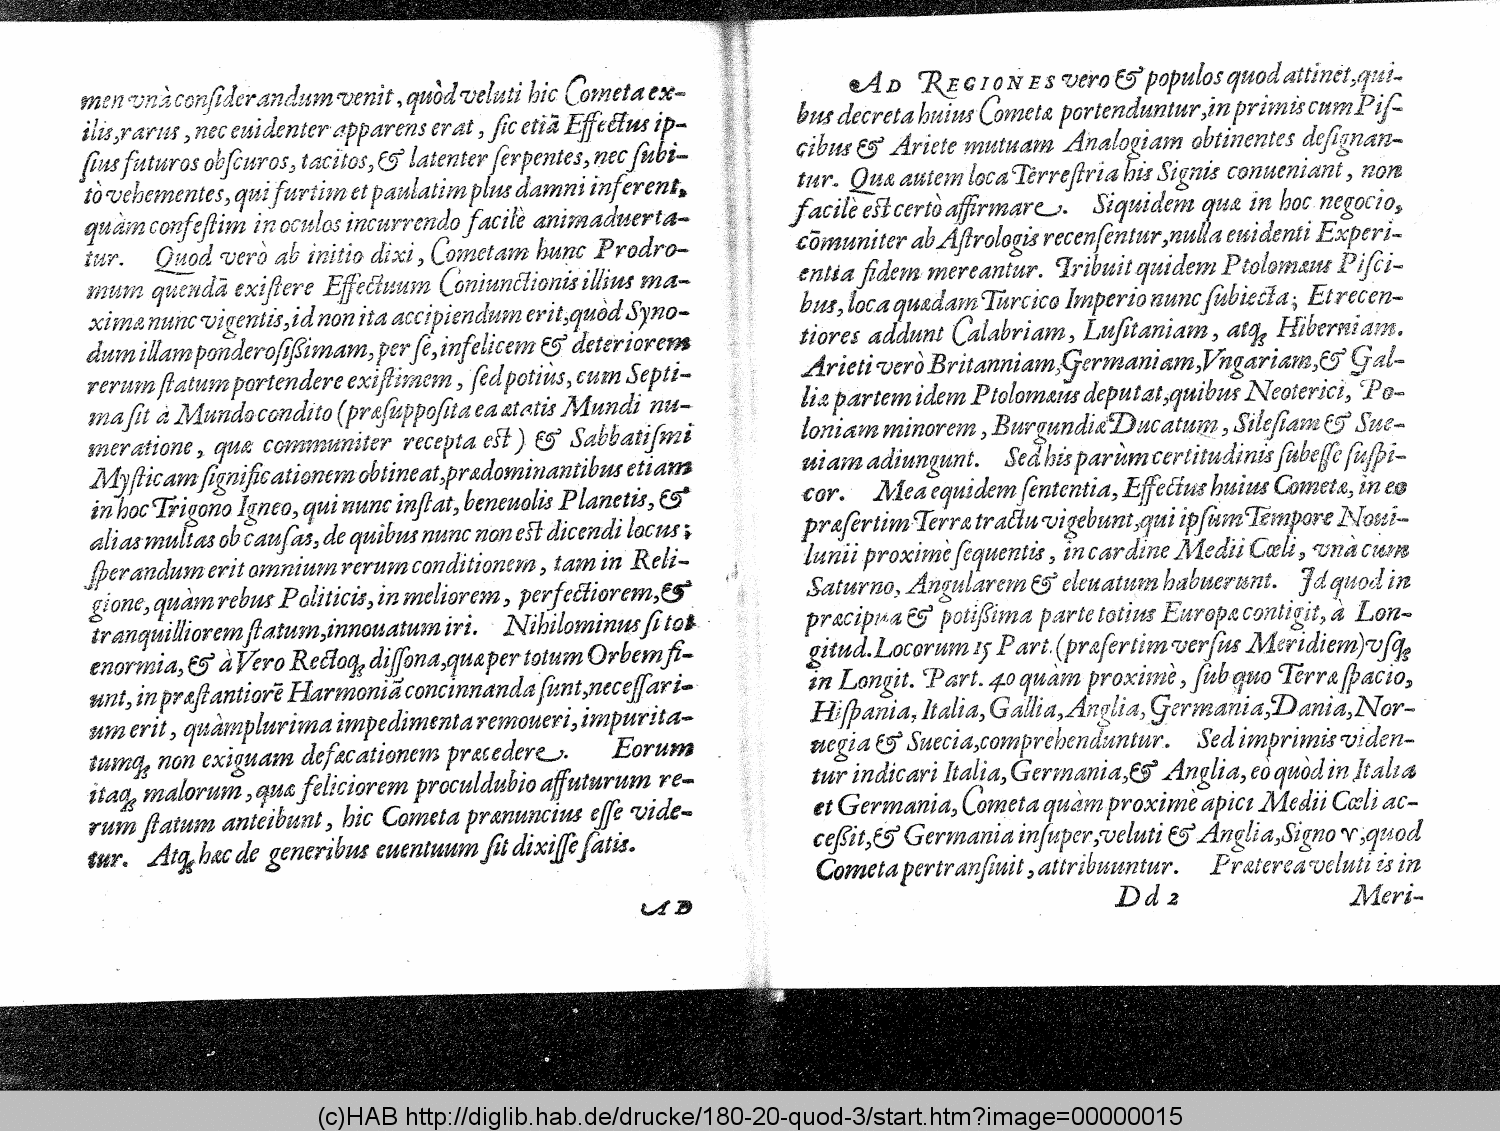 men vnà conſiderandum venit, quòd veluti hic Cometa ex-
ilis, rarus, nec euidenter apparens erat, ſic etiã Effectus ip-
ſius futuros obſcuros, tacitos, & latenter ſerpentes, nec ſubi-
tò vehementes, qui furtim et paulatim plus damni inferent,
quàm confeſtim in oculos incurrendo facilè animaduerta-
tur. Quod verò ab initio dixi, Cometam hunc Prodro-
mum quendã exiſtere Effectuum Coniunctionis illius ma-
ximæ nunc vigentis, id non ita accipiendum erit, quòd Syno-
dum illam ponderoſißimam, per ſe, infelicem & deteriorem
rerum ſtatum portendere exiſtimem, ſed potiùs, cum Septi-
ma ſit à Mundo condito (præſuppoſita ea ætatis Mundi nu-
meratione, quæ communiter recepta eſt) & Sabbatiſmi
Myſticam ſignificationem obtineat, prædominantibus etiam
in hoc Trigono Igneo, qui nunc inſtat, beneuolis Planetis, &
alias multas ob cauſas, de quibus nunc non eſt dicendi locus;
ſperandum erit omnium rerum conditionem, tam in Reli-
gione, quàm rebus Politicis, in meliorem, perfectiorem, &
tranquilliorem ſtatum, innouatum iri. Nihilominus ſi tot
enormia, & à Vero Rectoq; diſſona, quæ per totum Orbem fi-
unt, in præſtantiorẽ Harmoniã concinnanda ſunt, neceſſari-
um erit, quàmplurima impedimenta remoueri, impurita-
tumq; non exiguam defæcationem præcedere. Eorum
itaq; malorum, quæ feliciorem proculdubio affuturum re-
rum ſtatum anteibunt, hic Cometa prænuncius eſſe vide-
tur. Atq; hæc de generibus euentuum ſit dixiſſe ſatis.
AD
AD REGIONES vero & populos quod attinet, qui-
bus decreta huius Cometæ portenduntur, in primis cum Piſ-
cibus & Ariete mutuam Analogiam obtinentes deſignan-
tur. Quæ autem loca Terreſtria his Signis conueniant, non
facilè eſt certò affirmare. Siquidem quæ in hoc negocio,
cōmuniter ab Aſtrologis recenſentur, nulla euidenti Experi-
entia fidem mereantur. Tribuit quidem Ptolomæus Piſci-
bus, loca quædam Turcico Imperio nunc ſubiecta; Et recen-
tiores addunt Calabriam, Luſitaniam, atq; Hiberniam.
Arieti verò Britanniam, Germaniam, Vngariam, & Gal-
liæ partem idem Ptolomæus deputat, quibus Neoterici, Po-
loniam minorem, Burgundiæ Ducatum, Sileſiam & Sue-
uiam adiungunt. Sed his parùm certitudinis ſubeſſe ſuſpi-
cor. Mea equidem ſententia, Effectus huius Cometæ, in eo
præſertim Terræ tractu vigebunt, qui ipſum Tempore Noui-
lunii proximè ſequentis, in cardine Medii Cœli, vnà cum
Saturno, Angularem & eleuatum habuerunt. Id quod in
præcipua & potißima parte totius Europæ contigit, à Lon-
gitud. Locorum 15 Part. (præſertim verſus Meridiem) vſq;
in Longit. Part. 40 quàm proximè, ſub quo Terræ ſpacio,
Hiſpania, Italia, Gallia, Anglia, Germania, Dania, Nor-
uegia & Suecia, comprehenduntur. Sed imprimis viden-
tur indicari Italia, Germania, & Anglia, eò quòd in Italia
et Germania, Cometa quàm proximè apici Medii Cœli ac-
ceßit, & Germania inſuper, veluti & Anglia, Signo ♈, quod
Cometa pertranſiuit, attribuuntur. Præterea veluti is in
Dd 2 Meri-
(c)HAB http://diglib.hab.de/drucke/180-20-quod-3/start.htm?image=00000015